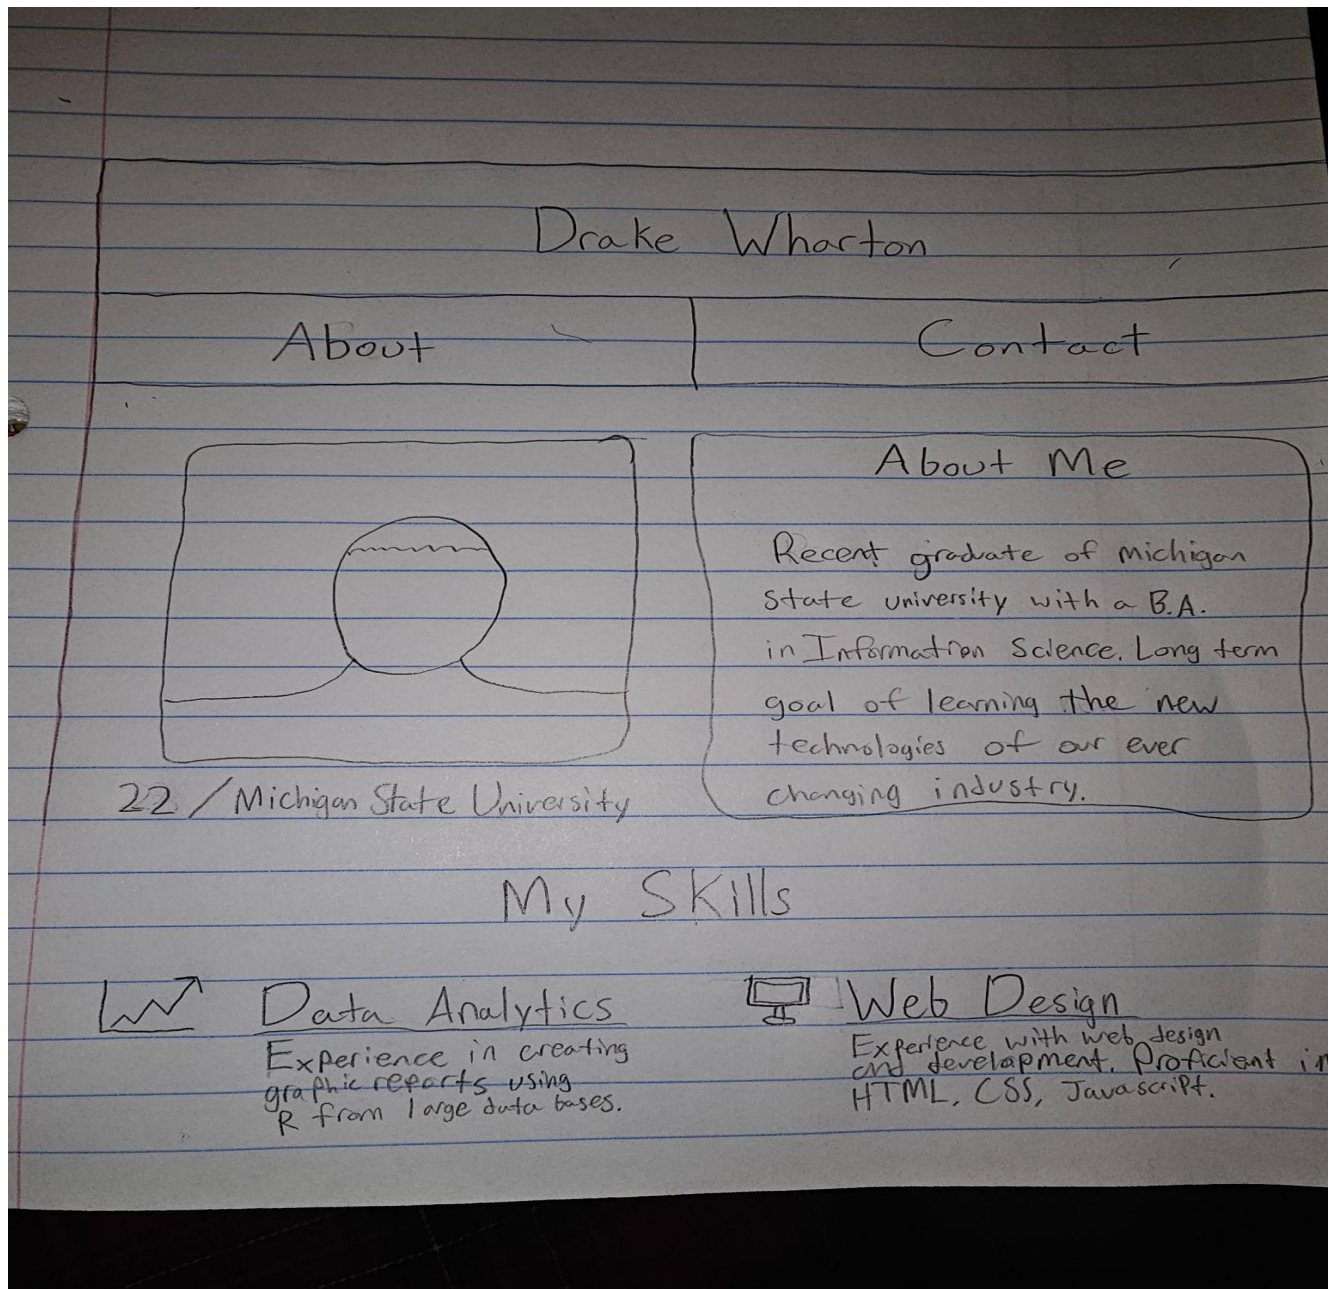 Drake Wharton
About
Contact
About Me
Recent graduate of michigan
State university with a B.A.
in Information Science. Long term
goal of learning the new
technologies of our ever
changing industry.
22 / Michigan State University
My Skills
Data Analytics
Experience in creating
graphic reports using
R from large data bases.
Web Design
Experience with web design
and development. Proficient in
HTML, CSS, Javascript.